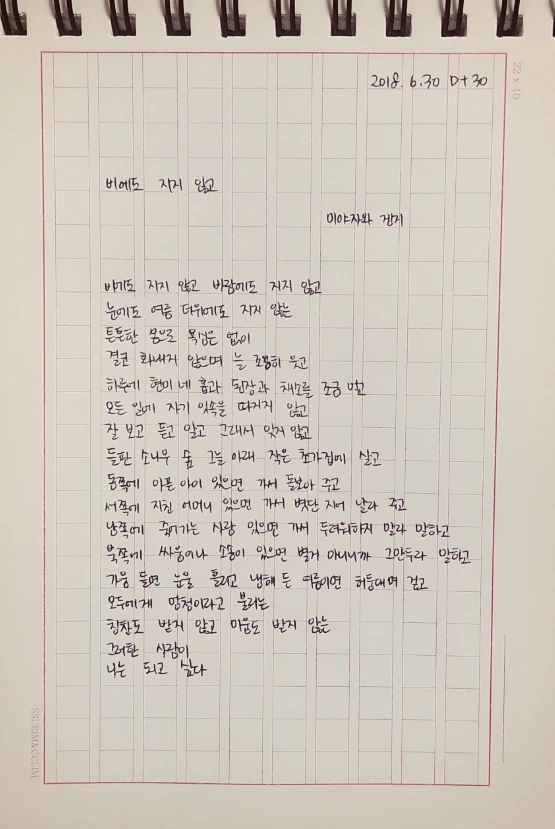 2018. 6. 30 D+30
22 x 10
비에도 지지 않고
미야자와 겐지
비에도 지지 않고 바람에도 지지 않고
눈에도 여름 더위에도 지지 않는
튼튼한 몸으로 욕심은 없이
결코 화내지 않으며 늘 조용히 웃고
하루에 현미 네 홉과 된장과 채소를 조금 먹고
모든 일에 자기 잇속을 따지지 않고
잘 보고 듣고 알고 그래서 잊지 않고
들판 소나무 숲 그늘 아래 작은 초가집에 살고
동쪽에 아픈 아이 있으면 가서 돌보아 주고
서쪽에 지친 어머니 있으면 가서 볏단 지어 날라 주고
남쪽에 죽어가는 사람 있으면 가서 두려워하지 말라 말하고
북쪽에 싸움이나 소송이 있으면 별거 아니니까 그만두라 말하고
가뭄 들면 눈물 흘리고 냉해 든 여름이면 허둥대며 걷고
모두에게 멍청이라고 불리는
칭찬도 받지 않고 미움도 받지 않는
그러한 사람이
나는 되고 싶다